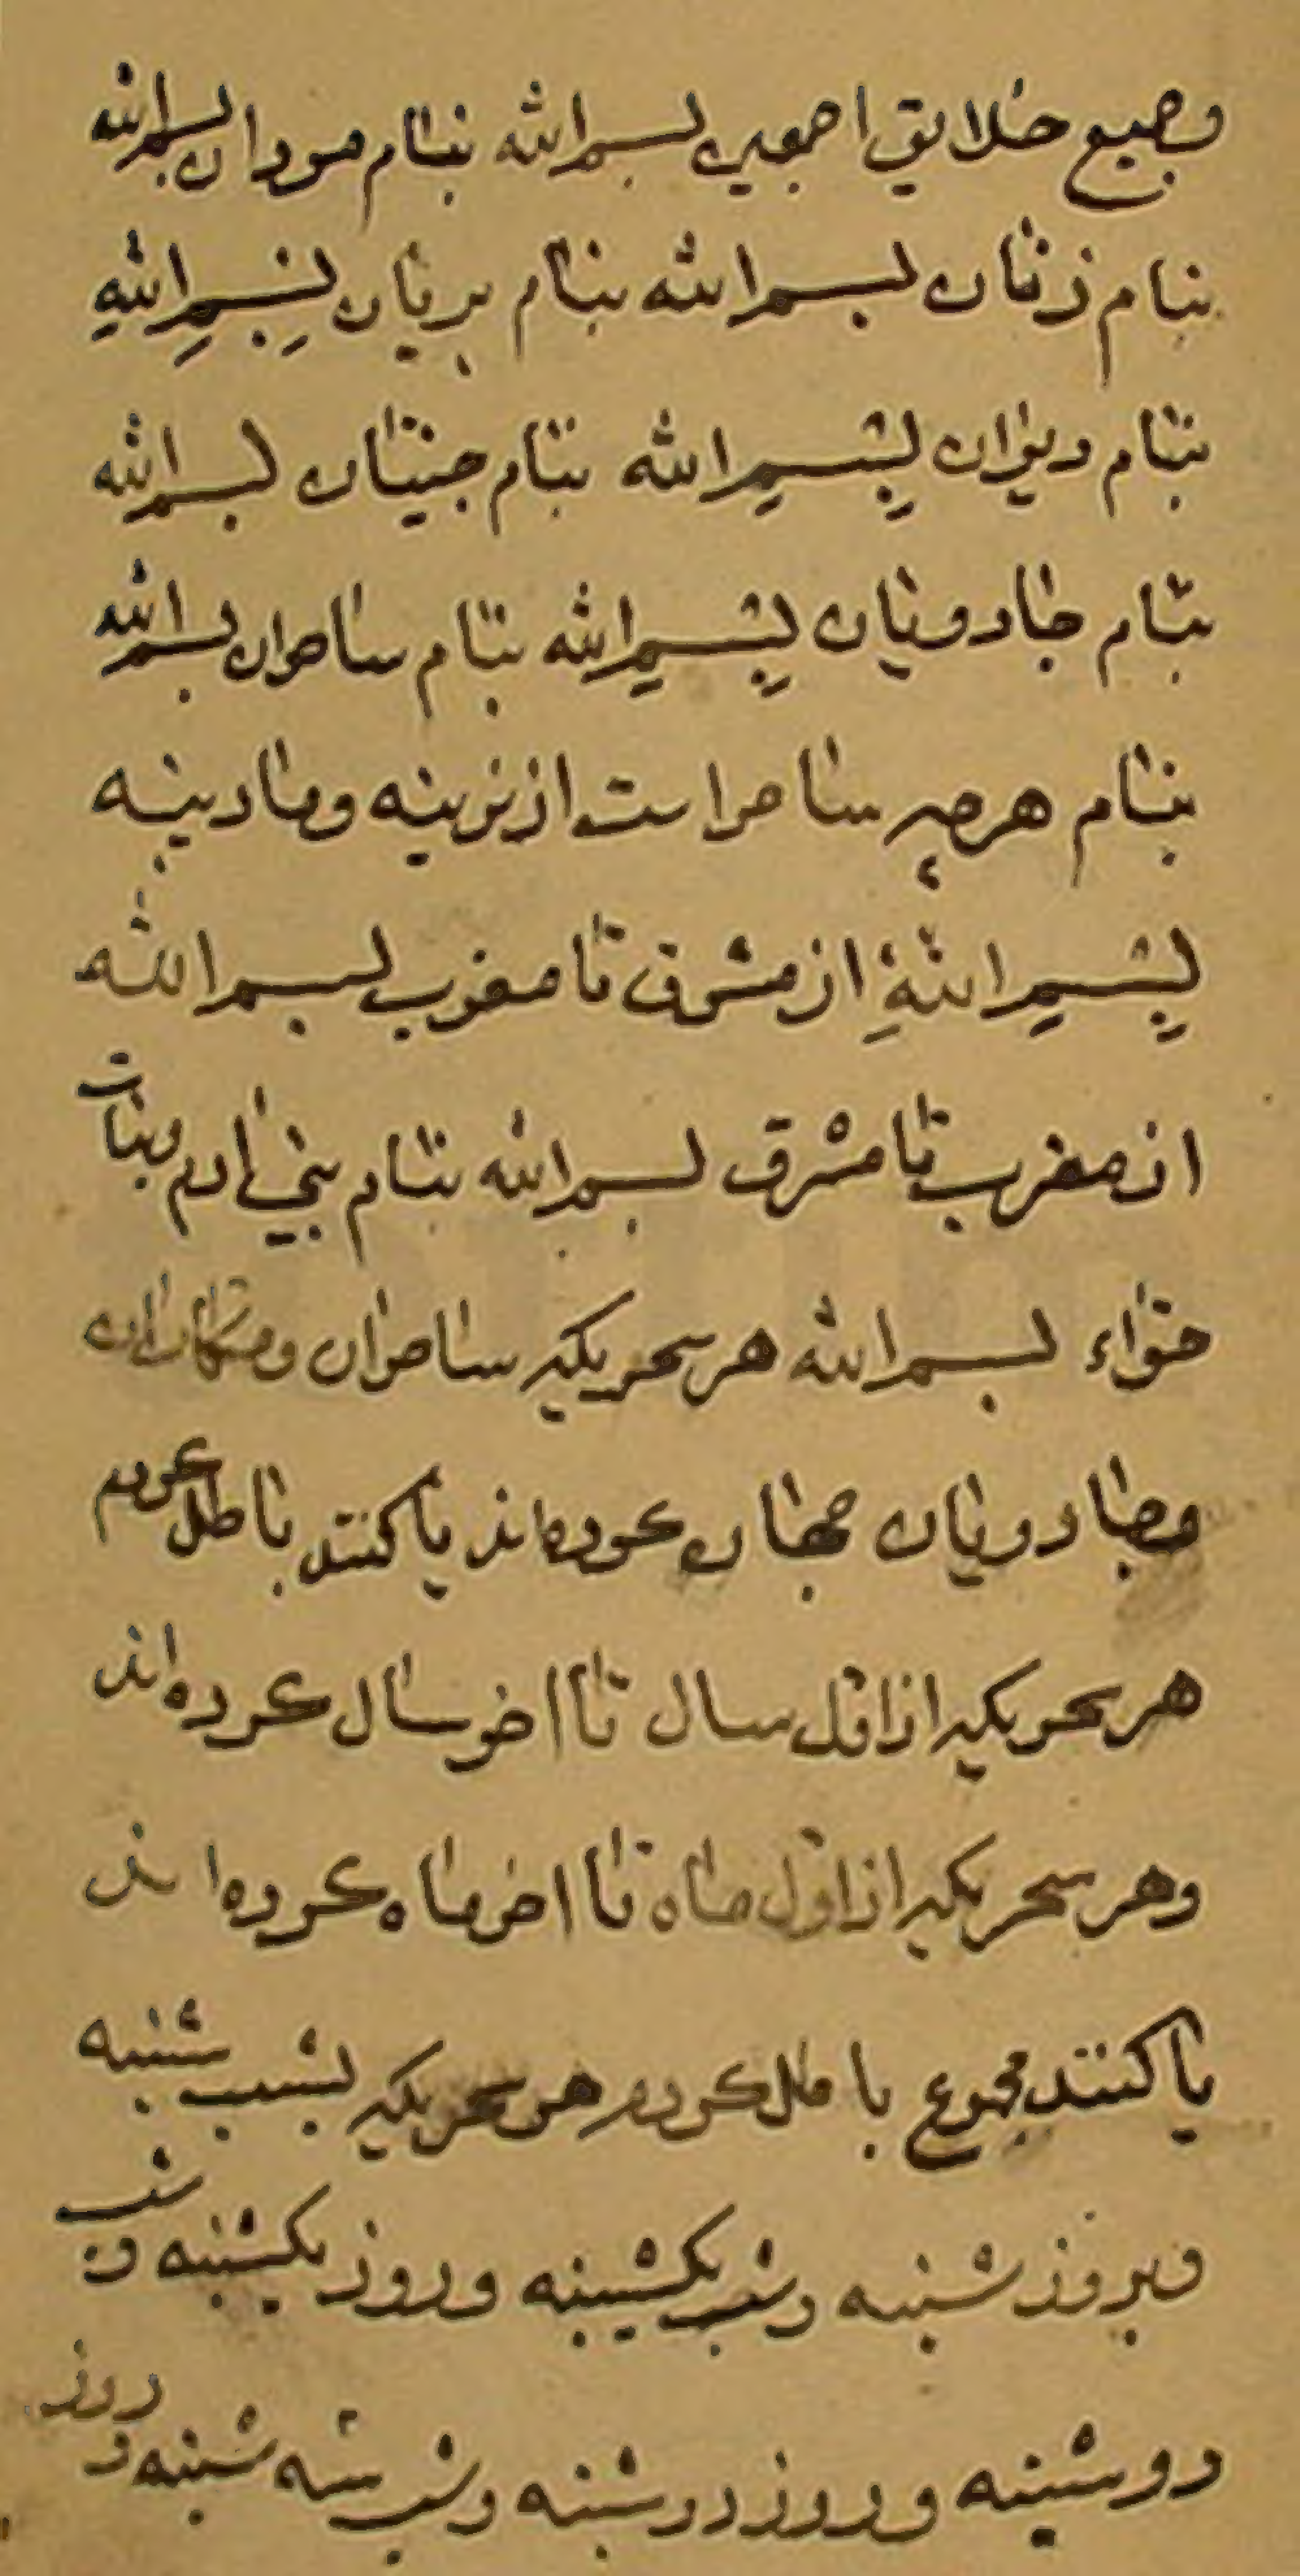 وجمیع خلایق اجمعین بسم الله بنام مردان بسم الله
بنام زنان بسم الله بنام پریان بِسْمِ اللهِ
بنام دیوان بِسْمِ الله بنام جنیان بسم الله
بنام جادویان بِسْمِ الله بنام ساحران بسم الله
بنام هرچه ساحراست از نرینه ومادینه
بِسْمِ اللهِ از مشرق تا مغرب بسم الله
از مغرب تا مشرق بسم الله بنام بنی ادم وبنات
حوّاء بسم الله هر سحریکه ساحران ومکاران
وجادویان جهان کرده‌اند یا کنند باطل کردم
هر سحریکه از اوّل سال تا اخر سال کرده‌اند
وهر سحریکه از اوّل ماه تا اخر ماه کرده‌اند
یا کنند مجموع باطل کردم هر سحریکه بشب شنبه
وبروز شنبه وشب یکشنبه وروز یکشنبه وشب
دوشنبه وروز دوشنبه وشب سه شنبه وروز